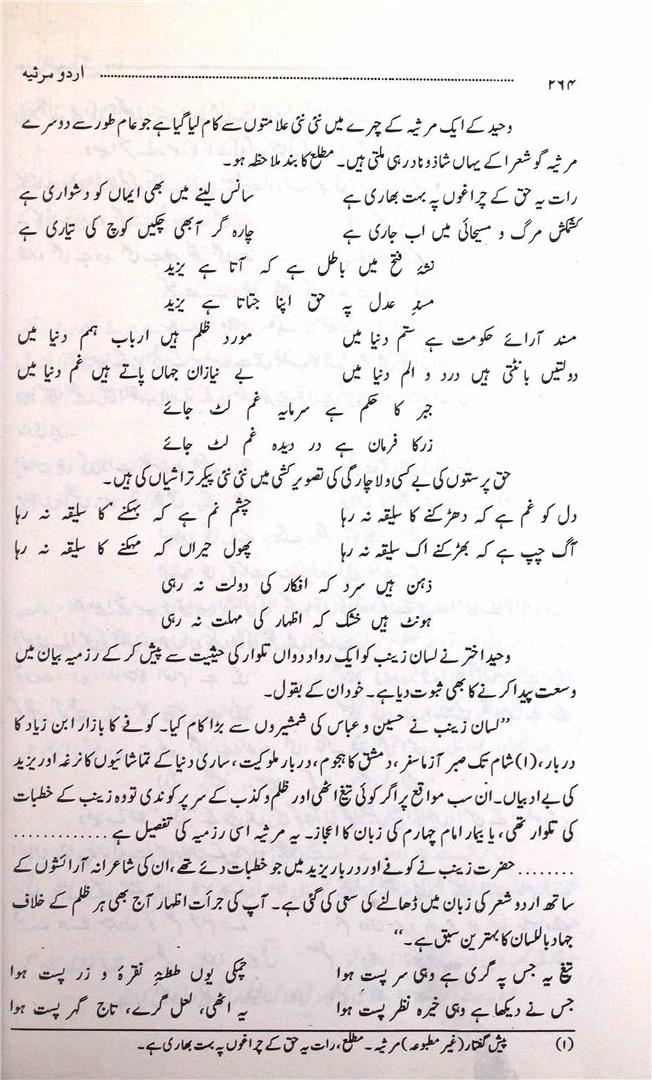 ۲۶۴ ........................................................ اردو مرثیہ
وحید کے ایک مرثیہ کے چہرے میں نئی نئی علامتوں سے کام لیا گیا ہے جو عام طور سے دوسرے
مرثیہ گو شعرا کے یہاں شاذ و نادر ہی ملتی ہیں۔ مطلع کا بند ملاحظہ ہو۔
رات یہ حق کے چراغوں پہ بہت بھاری ہے سانس لینے میں بھی ایماں کو دشواری ہے
کشمکش مرگ و مسیحائی میں اب جاری ہے چارہ گر آبھی چکیں کوچ کی تیاری ہے
نشۂ فتح میں باطل ہے کہ آتا ہے یزید
مسندِ عدل پہ حق اپنا جتاتا ہے یزید
مسند آرائے حکومت ہے ستم دنیا میں موردِ ظلم ہیں ارباب ہمم دنیا میں
دولتیں بانٹتی ہیں درد و الم دنیا میں بے نیازان جہاں پاتے ہیں غم دنیا میں
جبر کا حکم ہے سرمایہ غم لٹ جائے
زر کا فرمان ہے در دیدہ غم لٹ جائے
حق پرستوں کی بے کسی ولاچارگی کی تصویر کشی میں نئی نئی پیکر تراشیاں کی ہیں۔
دل کو غم ہے کہ دھڑکنے کا سلیقہ نہ رہا چشم نم ہے کہ بہکنے کا سلیقہ نہ رہا
آگ چپ ہے کہ بھڑکنے اک سلیقہ نہ رہا پھول حیراں کہ مہکنے کا سلیقہ نہ رہا
ذہن ہیں سرد کہ افکار کی دولت نہ رہی
ہونٹ ہیں خشک کہ اظہار کی مہلت نہ رہی
وحید اختر نے لسان زینب کو ایک رواد دواں تلوار کی حیثیت سے پیش کر کے رزمیہ بیان میں
وسعت پیدا کرنے کا بھی ثبوت دیا ہے۔ خود ان کے بقول۔
”لسان زینب نے حسین و عباس کی شمشیروں سے بڑا کام کیا۔ کوفے کا بازار ابن زیاد کا
دربار، (۱) شام تک صبر آزما سفر، دمشق کا ہجوم، دربار ملوکیت، ساری دنیا کے تماشائیوں کا نرغہ اور یزید
کی بے ادبیاں۔ ان سب مواقع پر اگر کوئی تیغ اٹھی اور ظلم و کذب کے سر پر کوندی تو وہ زینب کے خطبات
کی تلوار تھی، یا بیمار امام چہارم کی زبان کا اعجاز۔ یہ مرثیہ اسی رزمیہ کی تفصیل ہے ............
........ حضرت زینب نے کوفے اور دربار یزید میں جو خطبات دئے تھے، ان کی شاعرانہ آرائشوں کے
ساتھ اردو شعر کی زبان میں ڈھالنے کی سعی کی گئی ہے۔ آپ کی جرأت اظہار آج بھی ہر ظلم کے خلاف
جہاد باللسان کا بہترین سبق ہے۔“
تیغ یہ جس پہ گری ہے وہی سر پست ہوا چمکی یوں طنطنۂ نقرۂ و زر پست ہوا
جس نے دیکھا ہے وہی خیرہ نظر پست ہوا یہ اٹھی، لعل گرے، تاج گہر پست ہوا
(۱) پیش گفتار (غیر مطبوعہ) مرثیہ۔ مطلع، رات یہ حق کے چراغوں پہ بہت بھاری ہے۔